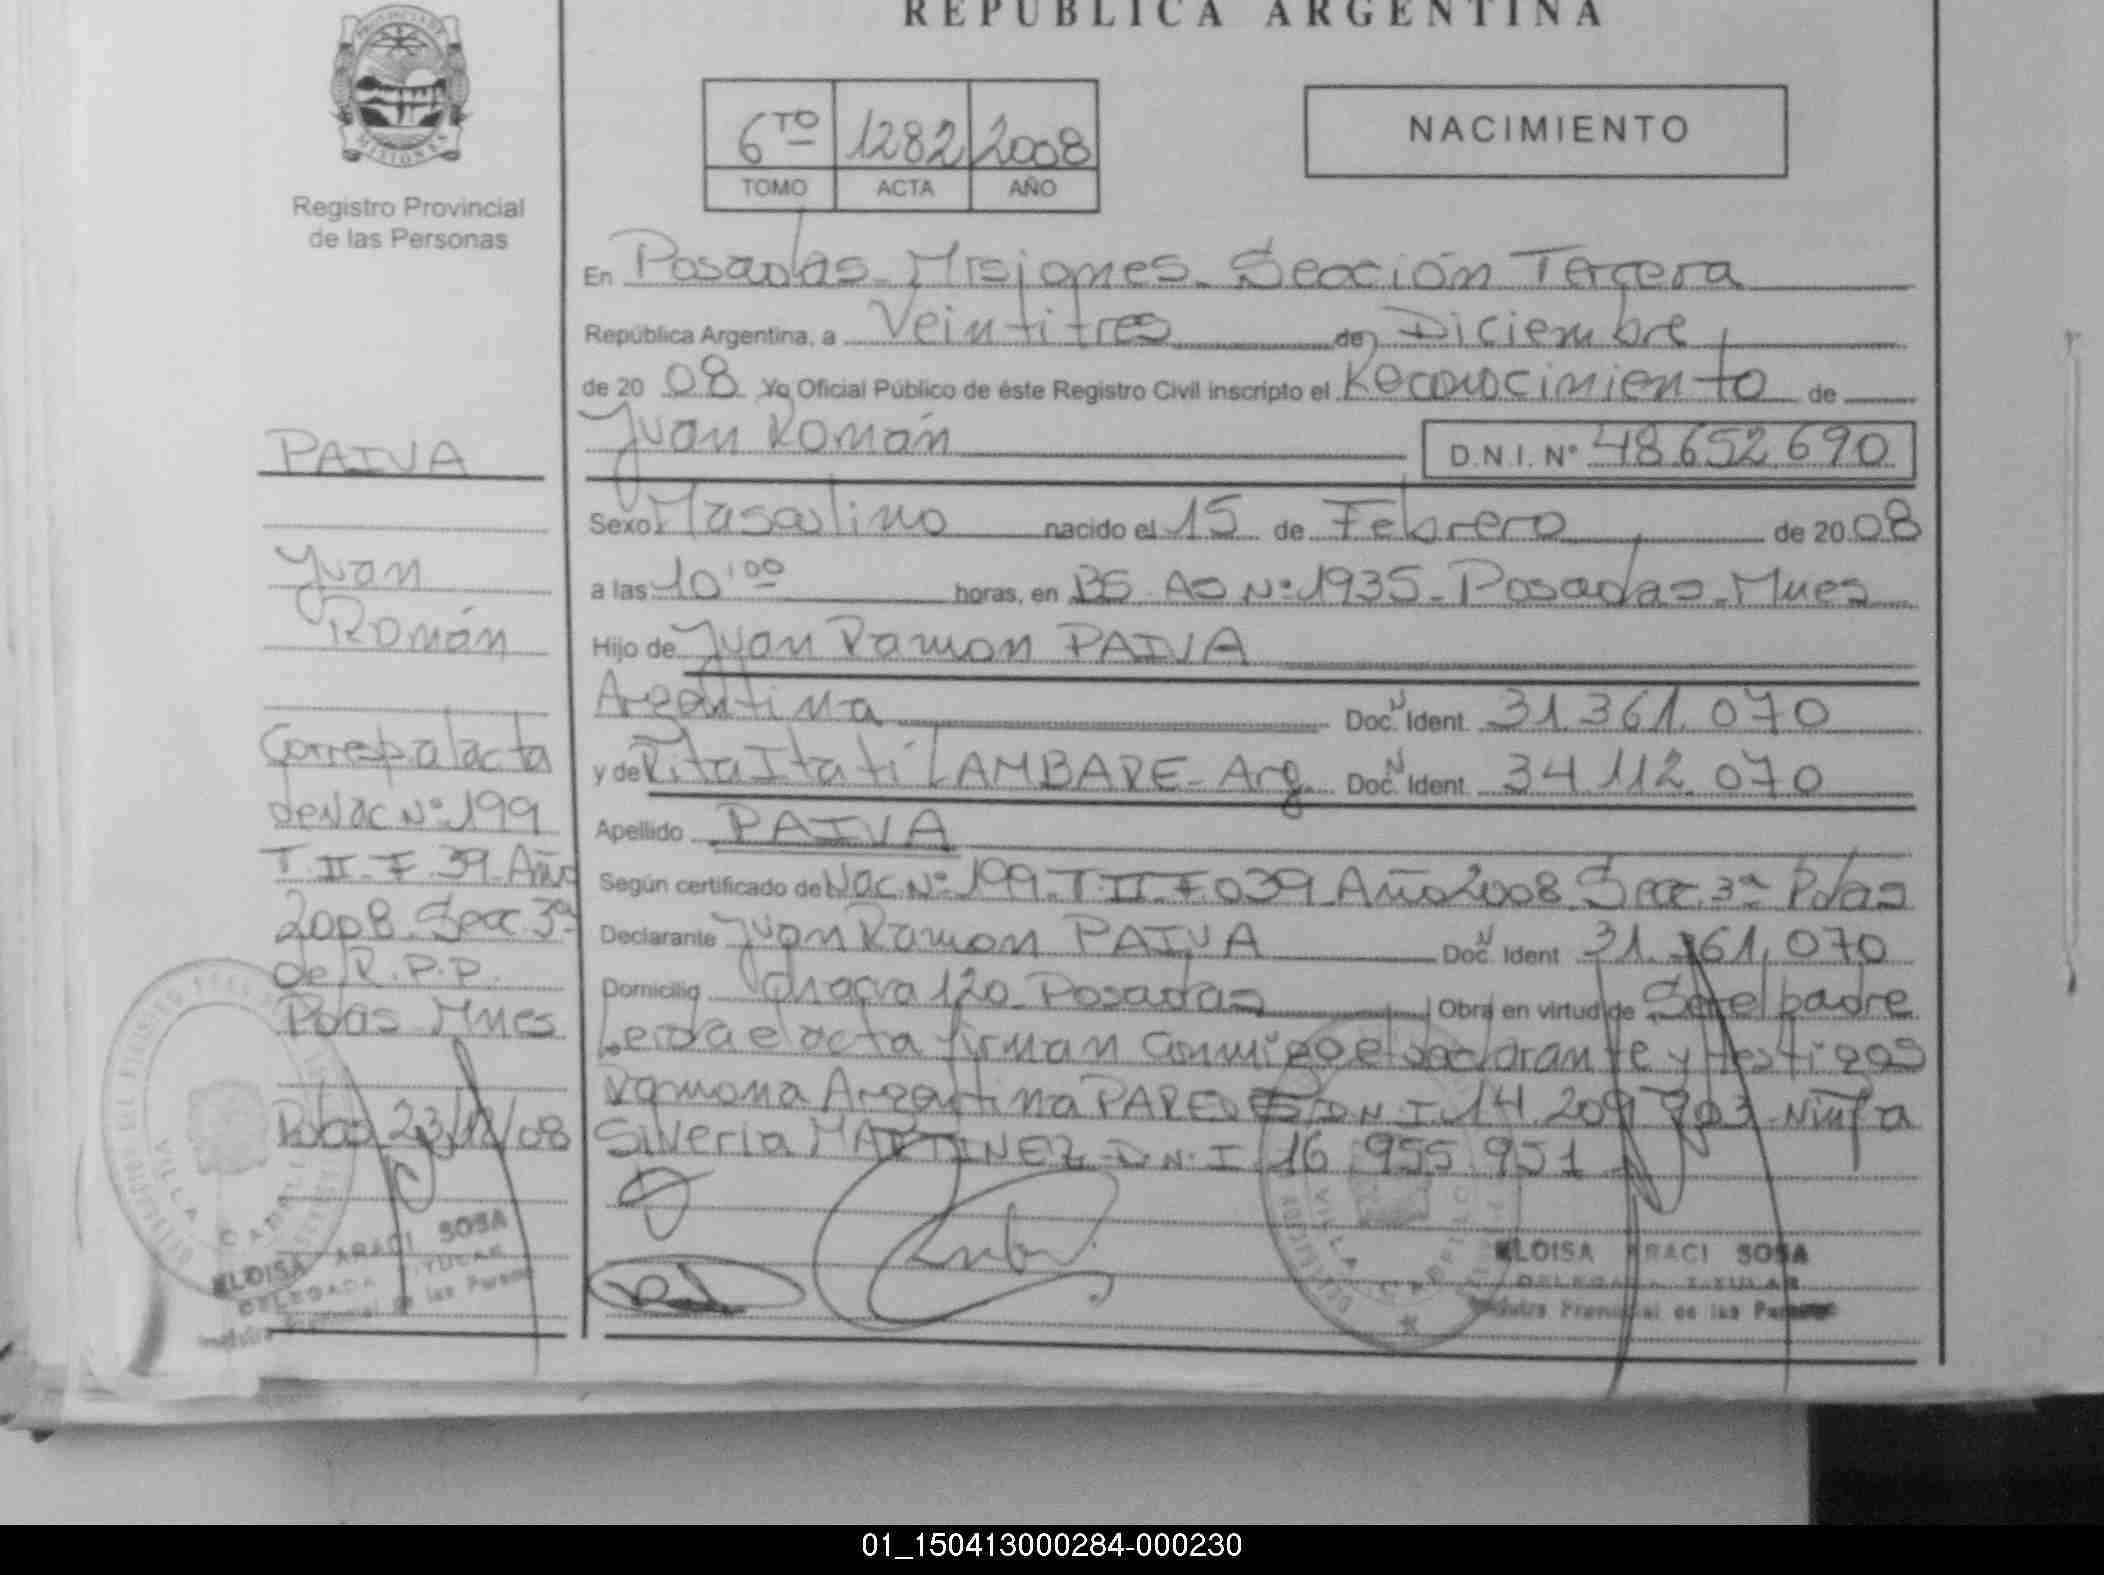 REPUBLICA ARGENTINA
PROVINCIA DE
MISIONES
Registro Provincial
de las Personas
6TO 1282 2008
TOMO ACTA AÑO
NACIMIENTO
En Posadas - Misiones - Sección Tercera
República Argentina, a Veintitres de Diciembre
de 20 08 Yo Oficial Público de éste Registro Civil inscripto el Reconocimiento de
Juan Román D.N.I. Nº 48.652.690
Sexo Masculino nacido el 15 de Febrero de 20 08
a las 10'00 horas, en BS. AS Nº 1935 - Posadas - Mnes
Hijo de Juan Ramon PAIVA
Argentina Doc. Ident. 31.361.070
y de Rita Itatí LAMBARE - Arg. Doc. Ident. 34.112.070
Apellido PAIVA
Según certificado de Nac. Nº 199 - T. II - F. 039 Año 2008 Secc. 3ª Pdas
Declarante Juan Ramon PAIVA Doc. Ident 31.361.070
Domicilio Chacra 120 - Posadas Obra en virtud de Ser el padre
Leida el acta firman conmigo el declarante y testigos
Ramona Argentina PAREDES D.N.I. 14.209. Ninfa
Silveria MARTINEZ - D.N.I. 16.955.951
ELOISA ARACI SOSA
DELEGADA TITULAR
Registro Provincial de las Personas
PAIVA
Juan
Román
Corresp al acta
de Nac Nº 199
T. II - F. 39 - Año
2008 - Secc. 3ª
de R.P.P.
Pdas Mnes
Pdas 23/12/08
VILLA CABELLO
ELOISA ARACI SOSA
DELEGADA TITULAR
Registro Provincial de las Personas
01_150413000284-000230